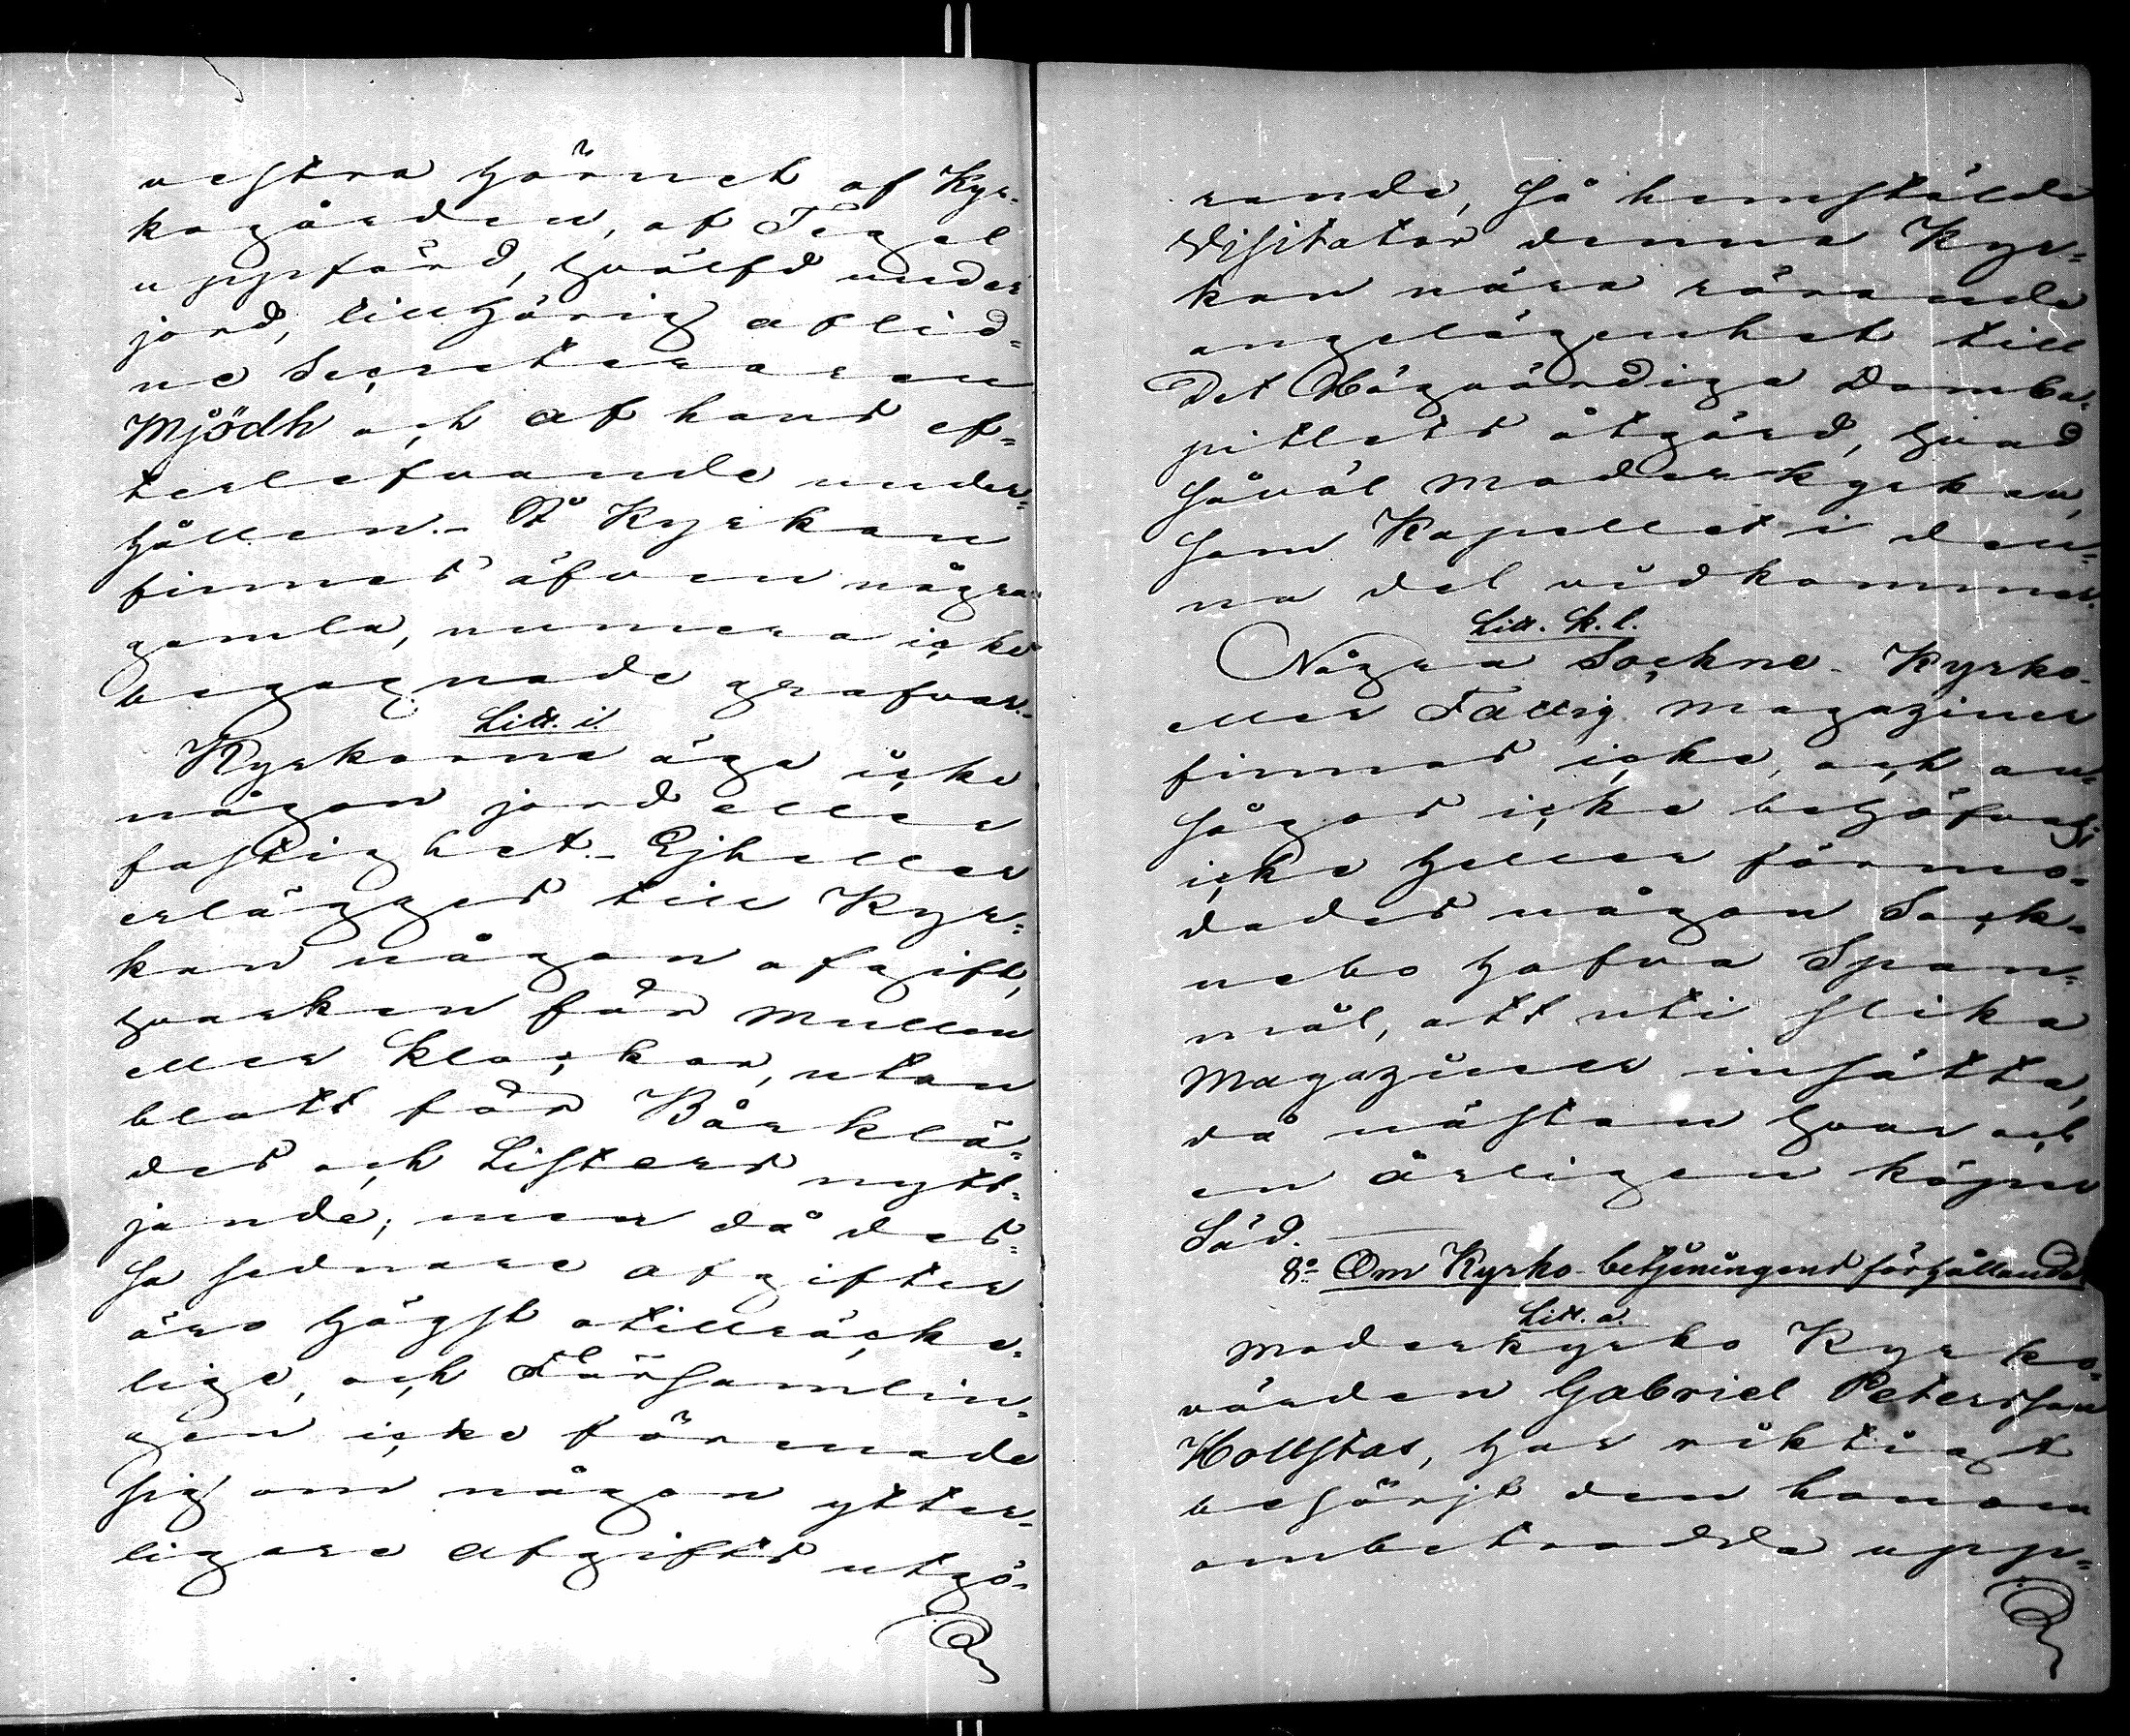 vestra hörnet af Kyr-
kogården, af Tegel
uppförd, hvälfd under
jord, tillhörig aflid=
ne Secreteraren
Mjödh och af hans ef=
terlefvande under=
hållen. – På Kyrkan
finnes äfven några
gamla, numera icke
begagnade grafvar.–
Litt. i
Kyrkorna äga icke
någon jord eller
fastighet. – Ej heller
erlägges till Kyr=
kan någon afgift,
hvarken för mullen
eller klockor, utan
blott för Bårklä=
des och Listers nytt=
jande; men då des=
sa sednare afgifter
äro högst otillräcke=
lige, och Församlin=
gen icke förenade
sig om någon ytter=
ligare afgifts utgö=
rande, så hemstälde
Visitator denna Kyr=
kan nära rörande
angelägenhet till
Det Högvärdiga Domka=
pitlets åtgärd, hvad
såväl Moderkyrkan,
som Kapellet i den=
na del vidkommer.
Litt. k. l.
Några Sockne- Kyrko-
eller Fattig Magaziner
finnas icke, och an=
sågos icke behöfvas;
icke heller förmo=
dades någon Sock=
nebo hafva Span=
mål, att uti slika
Magaziner insätta,
då nästan hvar och
en årligen köper
Säd.
8:o Om Kyrko-betjeningens förhållande
Litt. a.
Moderkyrko Kyrko=
värden Gabriel Petersson
Hollstas, har riktigt
besörjt den honom
ombetrodda upp=